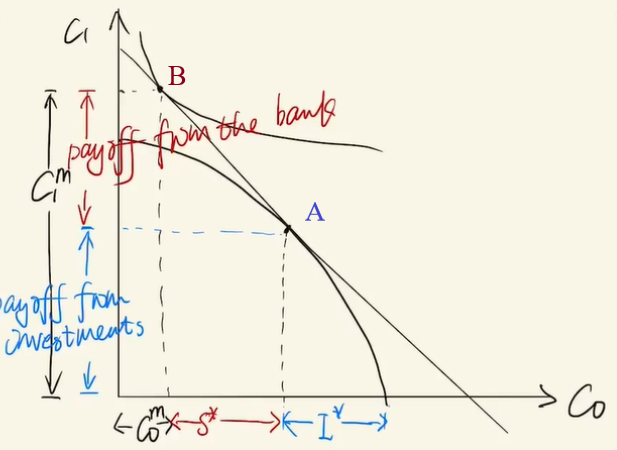 C₁
B
payoff from the bank
C₁ᵐ
A
payoff from
investments
C₀
C₀ᵐ
S*
I*